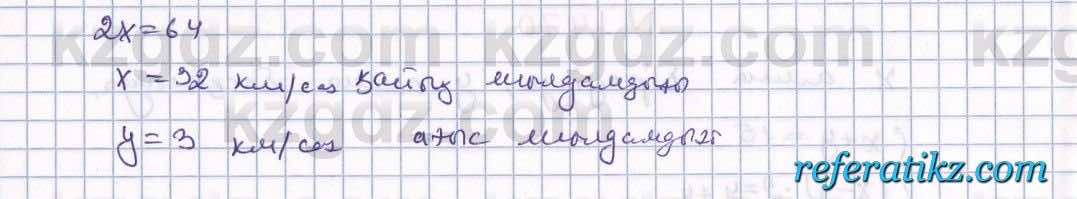 2x=64
kzgdz.com kzgdz.com kzgdz.com
x=32 км/сағ қайық жылдамдығы
y=3 км/сағ ағыс жылдамдығы
referatikz.com